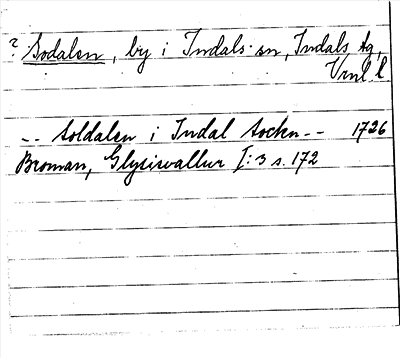 ? Sodalen, by i Indals sn, Indals tg,
Vrnl. l
-- Soldalen i Indal Sockn-- 1726
Broman, Glysisvallur I:3 s. 172